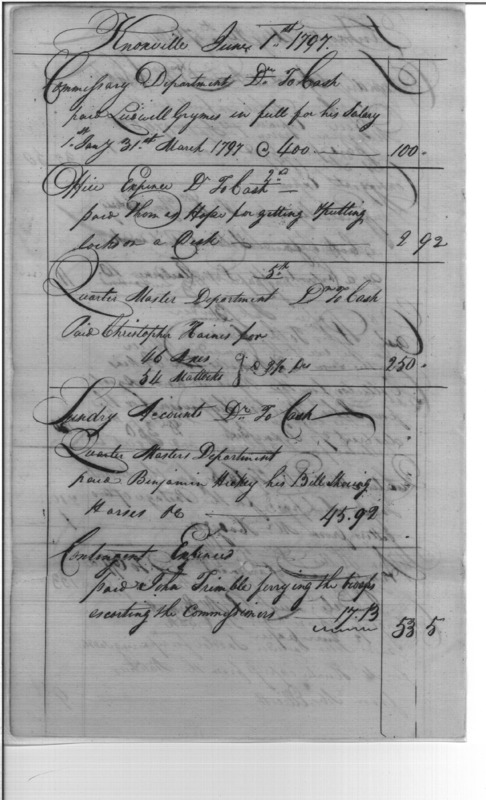 Knoxville June 1st 1797.
Commissary Department Dr To Cash
paid Ludwell Grymes in full for his Salary
1st Jany 31st March 1797 @ 400 100.
2d
Office Expence Dr To Cash
paid Thomas Hope for getting & putting
locks on a Desk 2 92
5th
Quarter Master Department Dr To Cash
Paid Christopher Haines for
46 Axes
54 Mattocks 250.
Sundry Accounts Dr To Cash
Quarter Masters Department
paid Benjamin his Bill Shoeing
Horses &c 45.92
Contingent Expences
paid John Trimble ferrying the troops
escorting the Commissioners 17.13
53 5